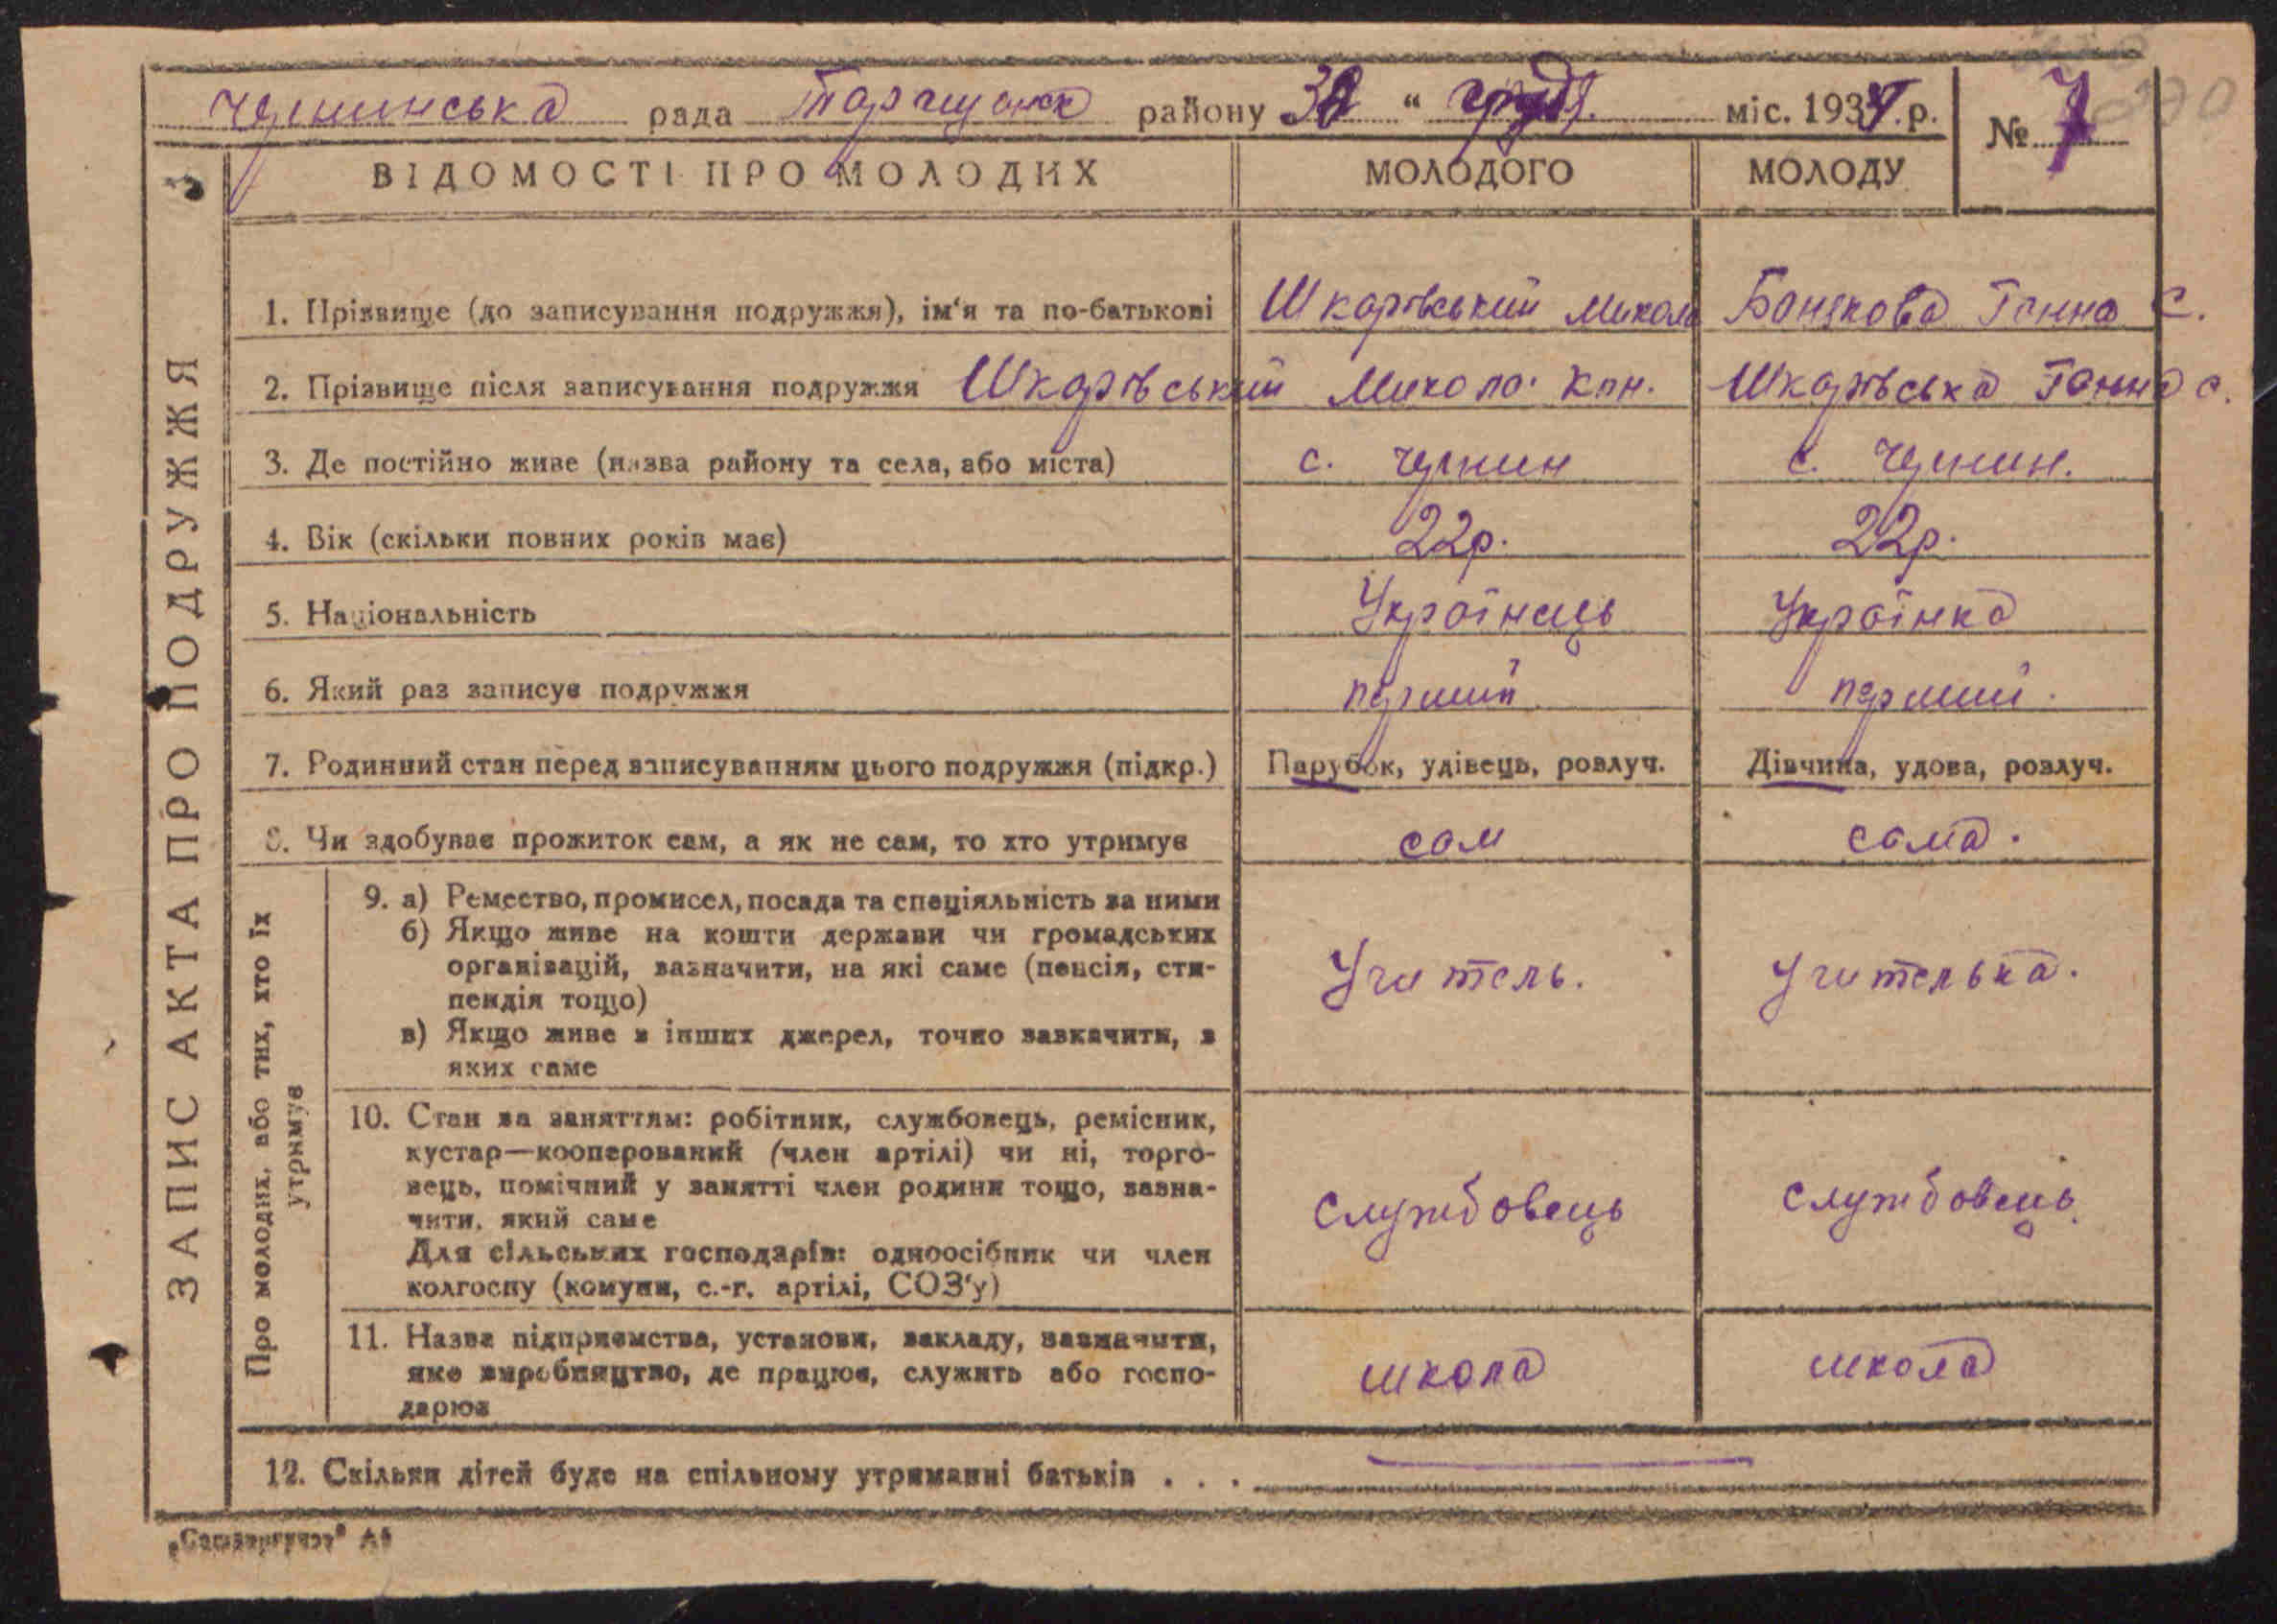 Чернинська рада Таращанск району 30 “ груд. міс. 1934 р.
№ 7
ЗАПИС АКТА ПРО ПОДРУЖЖЯ
ВІДОМОСТІ ПРО МОЛОДИХ МОЛОДОГО МОЛОДУ
1. Прізвище (до записування подружжя), ім‘я та по-батькові Шкарівський Микола Ганна С.
2. Прізвище після записування подружжя Шкарівський Микола Кон. Шкарівська Ганна С.
3. Де постійно живе (назва району та села, або міста) с. Чернин с. Чернин.
4. Вік (скільки повних років має) 22р. 22р.
5. Національність Українець Українка
6. Який раз записує подружжя перший перший.
7. Родинний стан перед записуванням цього подружжя (підкр.) Парубок, удівець, розлуч. Дівчина, удова, розлуч.
8. Чи здобуває прожиток сам, а як не сам, то хто утримує сам сама.
Про молодих, або тих, хто їх
утримує
9. а) Ремество, промисел, посада та спеціяльність за ними
б) Якщо живе на кошти держави чи громадських
організацій, зазначити, на які саме (пенсія, сти-
пендія тощо) Учитель. Учителька.
в) Якщо живе з інших джерел, точно зазначити, з
яких саме
10. Стан за заняттям: робітник, службовець, ремісник,
кустар—кооперований (член артілі) чи ні, торго-
вець, помічний у занятті член родини тощо, зазна-
чити, який саме Службовець Службовець
Для сільських господарів: одноосібник чи член
колгоспу (комуни, с.-г. артілі, СОЗ‘у)
11. Назва підприємства, установи, закладу, зазначити,
яке виробництво, де працює, служить або госпо- школа школа
дарює
12. Скільки дітей буде на спільному утриманні батьків . . .